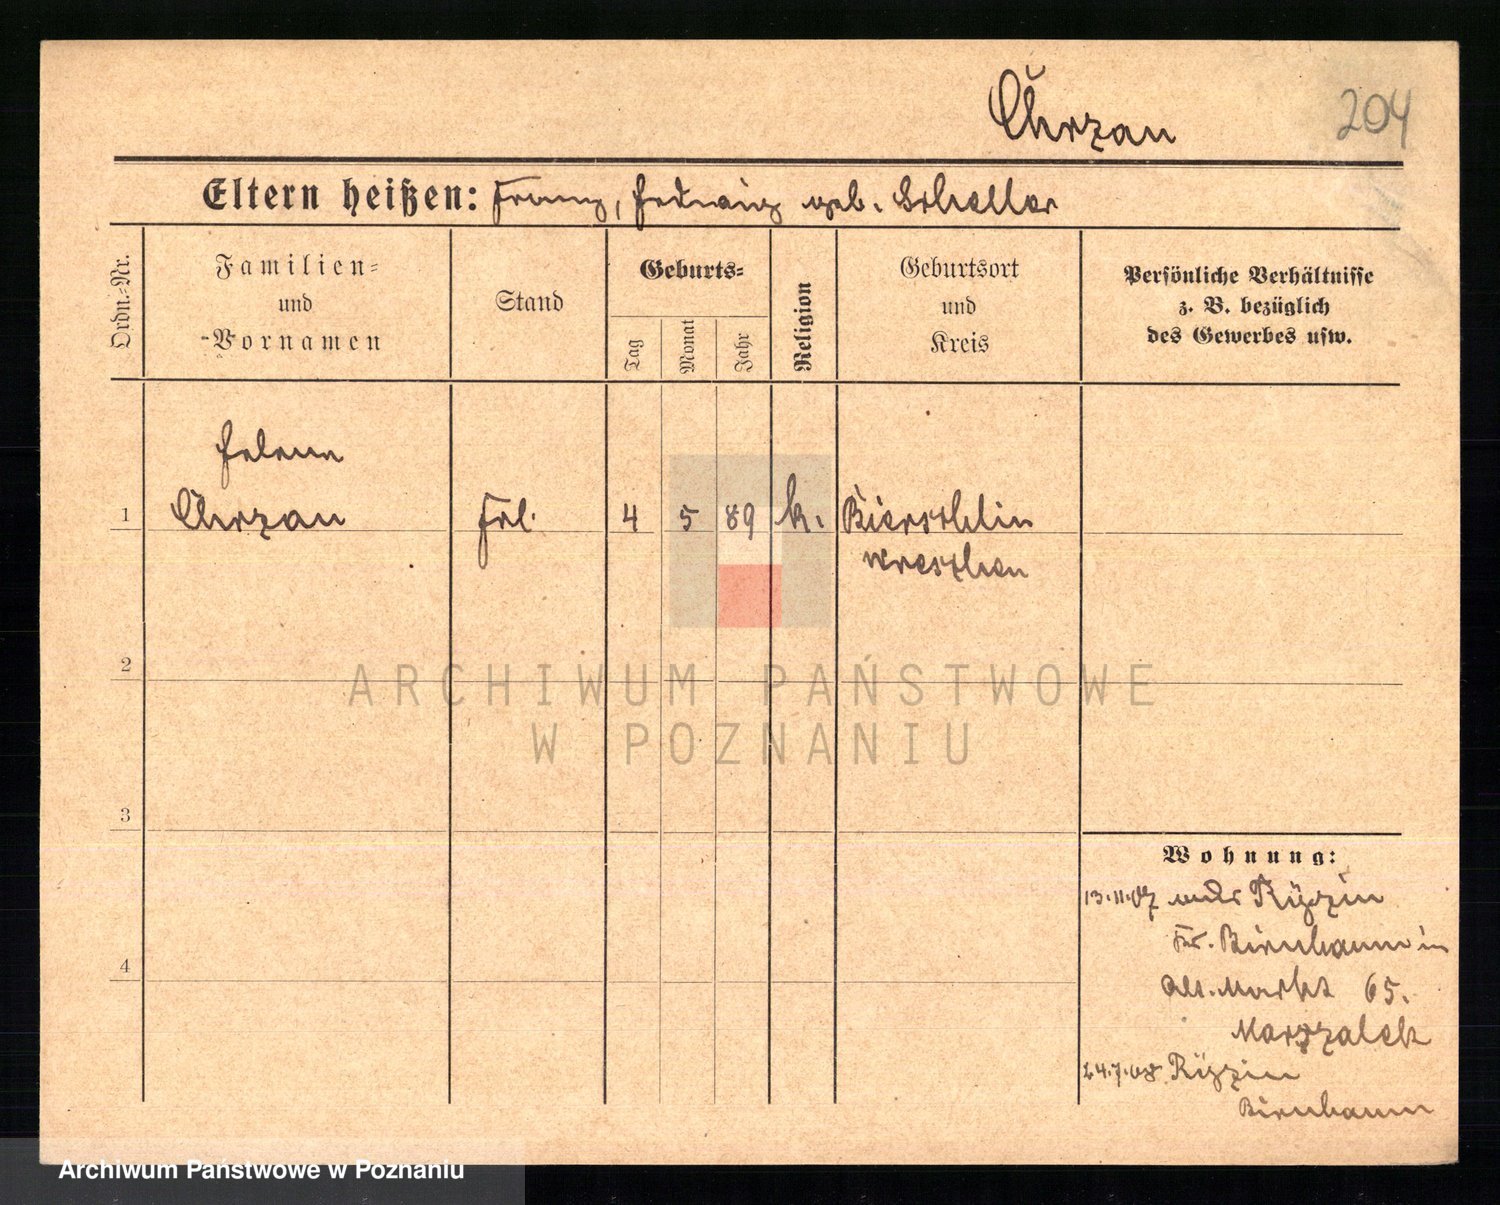 Chrzan 204
Eltern heißen: Franz, Hedwig geb. Scheller
Ordn.-Nr.
Familien-
und
-Vornamen
Stand
Geburts-
Tag
Monat
Jahr
Religion
Geburtsort
und
Kreis
Persönliche Verhältnisse
z. B. bezüglich
des Gewerbes usw.
Helene
1 Chrzan Frl. 4 5 89 k. Biersthlin
Wreschen
2
ARCHIWUM PAŃSTWOWE
W POZNANIU
3
4
Wohnung:
13.11.07
Kr. Birnbaum in
Alt. Markt 65.
Marszalek
24.7.08
Birnbaum
Archiwum Państwowe w Poznaniu